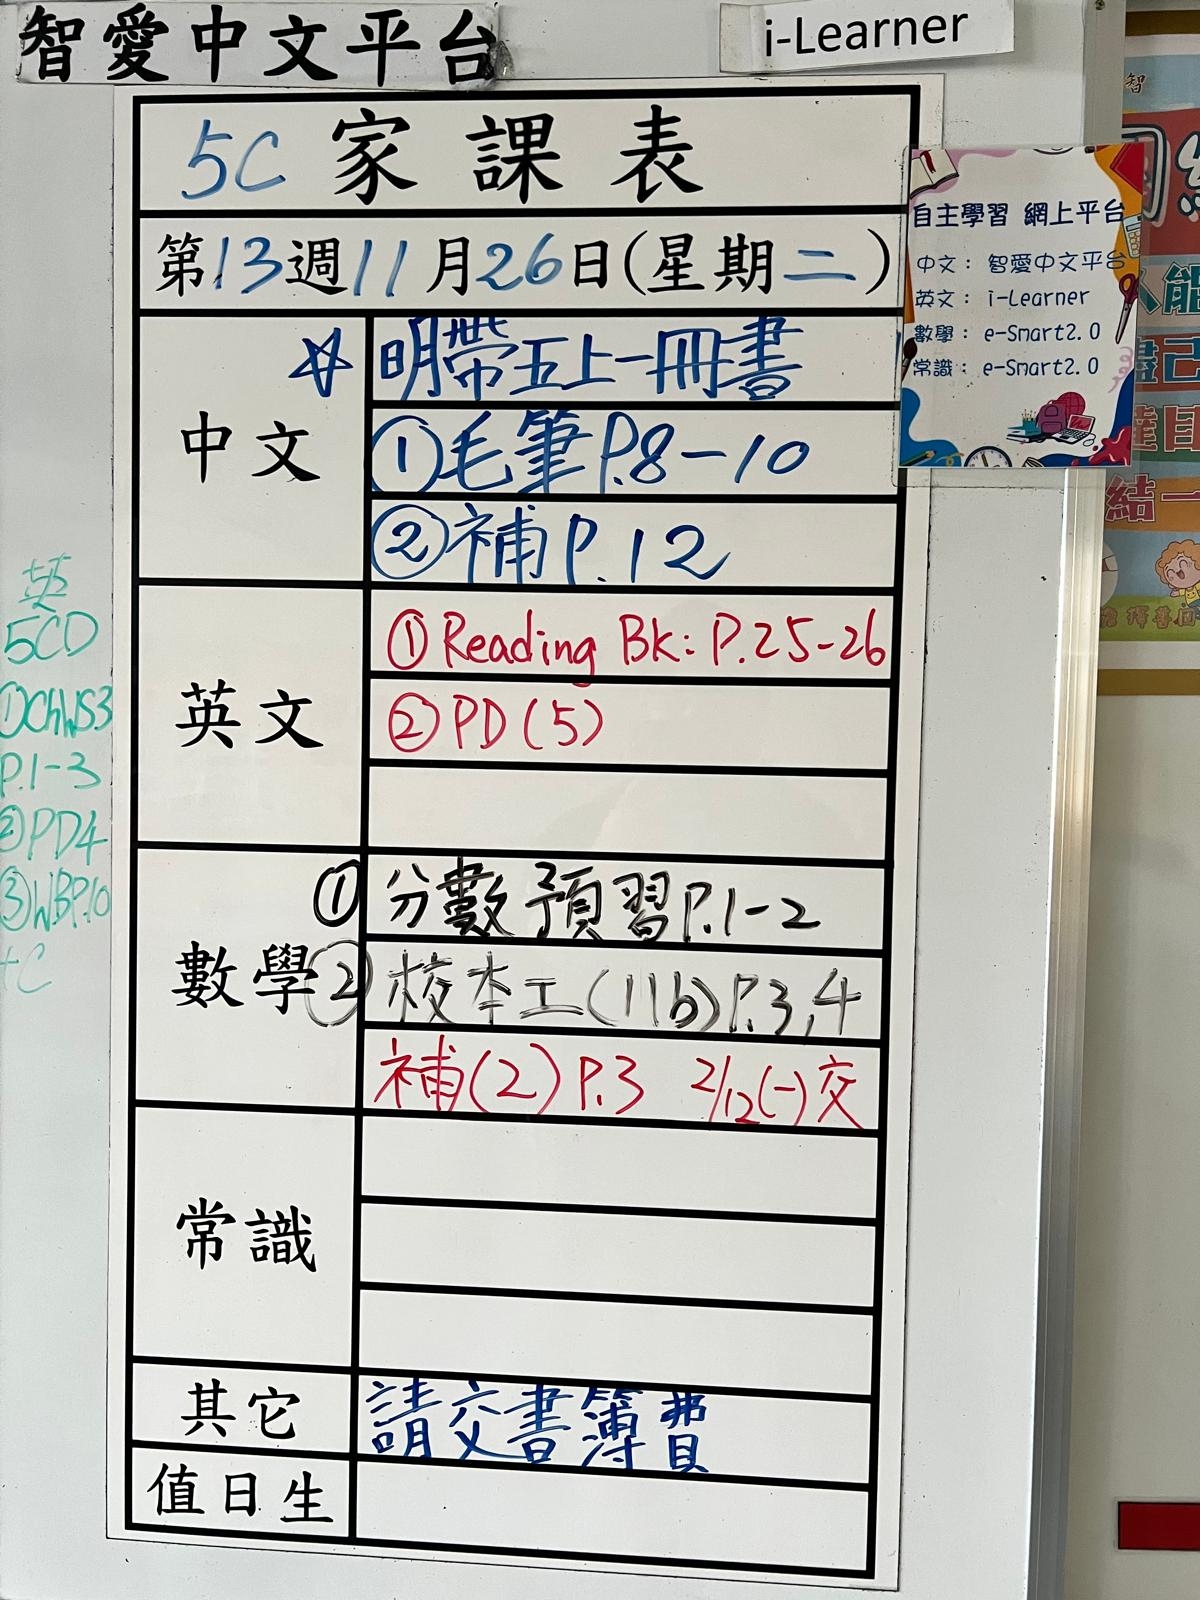 智愛中文平台
i-Learner
5C 家課表
第13週11月26日(星期二)
自主學習 網上平台
中文： 智愛中文平台
英文： i-Learner
數學： e-Smart2.0
常識： e-Smart2.0
中文
☆ 明帶五上一冊書
①毛筆P.8-10
②補P.12
英文
①Reading Bk: P.25-26
②PD(5)
數學
① 分數預習P.1-2
② 校本工(11b)P.3,4
補(2)P.3 2/12(一)交
常識
其它
請交書簿費
值日生
英
5CD
①ChWS3
P.1-3
②PD4
③WBP.10
+C
智
能
盡己
達目
結一